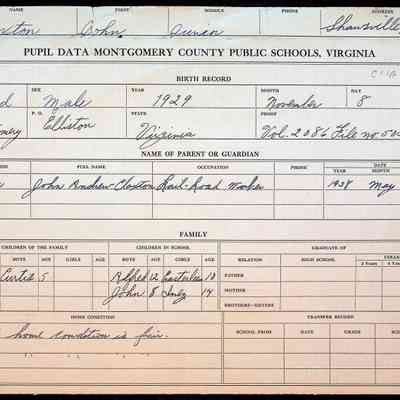 NAME FIRST MIDDLE PHONE ADDRESS
xton John Junior Shawsville
PUPIL DATA MONTGOMERY COUNTY PUBLIC SCHOOLS, VIRGINIA
BIRTH RECORD
SEX YEAR MONTH DAY
d Male 1929 November 8
P. O. STATE PROOF
mery Elliston Virginia Vol. 2086 File no. 50
NAME OF PARENT OR GUARDIAN
FULL NAME OCCUPATION PHONE DATE
YEAR MONTH
John Andrew Claxton Rail-Road Worker 1938 May
FAMILY
CHILDREN OF THE FAMILY CHILDREN IN SCHOOL GRADUATE OF
BOYS AGE GIRLS AGE BOYS AGE GIRLS AGE RELATION HIGH SCHOOL 2 Years 4 Years
Curtis 5 Alfred 12 18 FATHER
John 8 Inez 14 MOTHER
BROTHERS—SISTERS
HOME CONDITION TRANSFER RECORD
home condition is fair. SCHOOL FROM DATE GRADE SCHOOL
" " " "